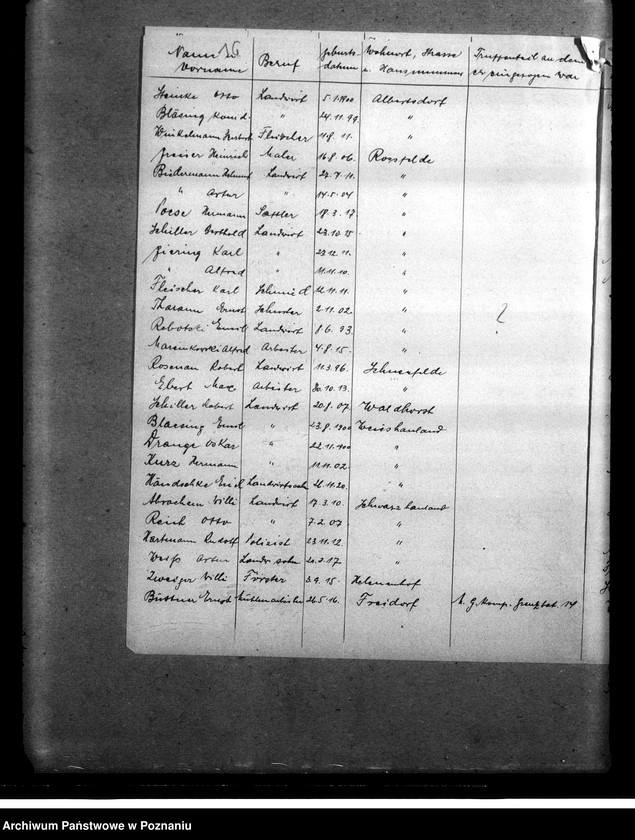 Name u. Vorname Beruf Geburts-datum Wohnort, Strasse u. Hausnummer Truppenteil zu dem er eingezogen war
Steinke Otto Landwirt 5.1.1900 Albertsdorf
Bläsing 24.11.99. "
Winkelmann Herbert Fleischer 11.8.11. "
Greiser Heinrich Maler 16.8.06. Rossfelde
Biedermann Helmut Landwirt 24.7.11. "
" Artur " 14.5.04 "
Poese Hermann Sattler 18.3.17 "
Schiller Berthold Landwirt 23.10.15 "
Ziering Karl " 23.12.11. "
" Alfred " 11.11.10. "
Fleischer Karl Schmied 12.11.11. "
Tharann Ernst Schuster 2.11.02. "
Rebotzki Emil Landwirt 8.6.93. "
Marenkowski Alfred Arbeiter 4.8.15. "
Rosenau Robert Landwirt 11.3.96. Schneefelde
Ebert Max Arbeiter 30.10.13. "
Schiller Robert Landwirt 20.8.07. Waldhorst
Blaesing Ernst " 23.8.1900 Weisshauland
Drange Oskar " 22.11.1900 "
Kurz Hermann " 11.11.02. "
Händschke Erich Landwirtssohn 26.11.20. "
Abracham Willi Landwirt 17.3.10. Schwarzhauland
Reich Otto " 7.2.07. "
Hartmann Rudolf Polizist 23.11.12. "
Weiß Artur Landw. sohn 20.2.17. "
Zweiger Willi Förster 3.9.15. Helenenhof
Büttner Ernst 26.5.16. Freidorf 14
2
Archiwum Państwowe w Poznaniu